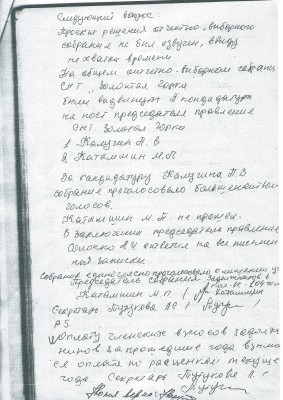 Следующий вопрос:
Проект решения отчетно-выборного
собрания не был озвучен, ввиду
нехватки времени
На общем отчетно-выборном собрании
СНТ "Золотая Горка"
были выдвинуты 2 кандидатуры
на пост председателя правления
СНТ Золотая Горка
1. Калугин П. В
2 Каташкин М. П
За кандидатуру Калугина П. В
собрание проголосовало большинством
голосов.
Каташкин М. П - не прошел.
В заключении председатель правления
ответил на все письмен
ные записки
Собрание единогласно проголосовало
Председатель собрания
Каташкин М. П.
Секретарь Тутукова Л С
P.S.
Оплату членских взносов задолж
ников за прошедшие года взима
ся оплата по расценкам текуще
года. Секретарь Тутукова Л. С